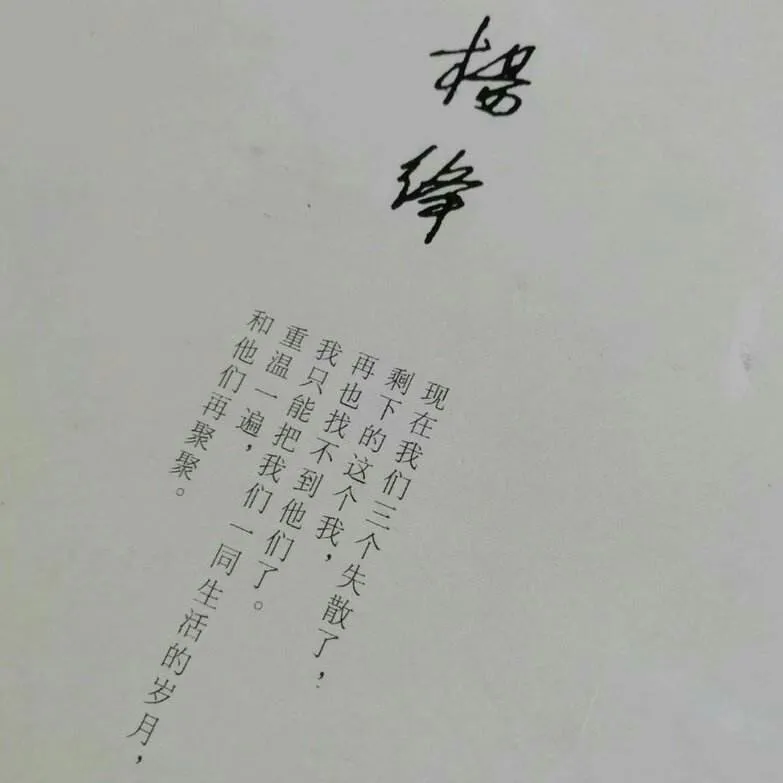 楊绛
现在我们三个失散了，
剩下的这个我，
再也找不到他们了。
我只能把我们一同生活的岁月，
重温一遍，
和他们再聚聚。